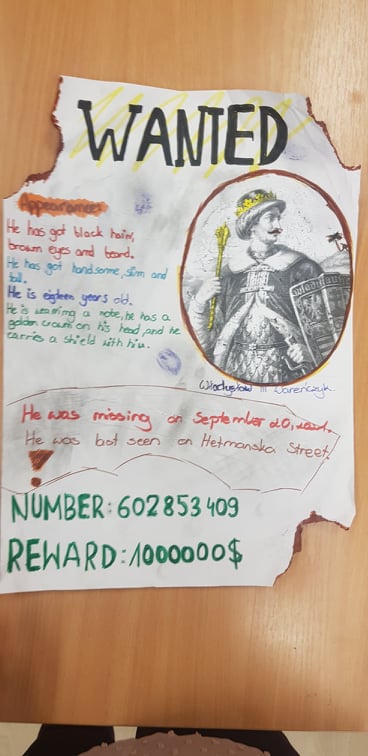 WANTED
Appearance:
He has got black hair,
brown eyes and beard.
He has got handsome, slim and
tall.
He is eighteen years old.
He is wearing a robe, he has a
golden crown on his head, and he
carries a shield with him.
Władysław III Warneńczyk
He was missing on September 20,
He was last seen on Hetmanska Street.
!
NUMBER: 602853409
REWARD: 1000000$